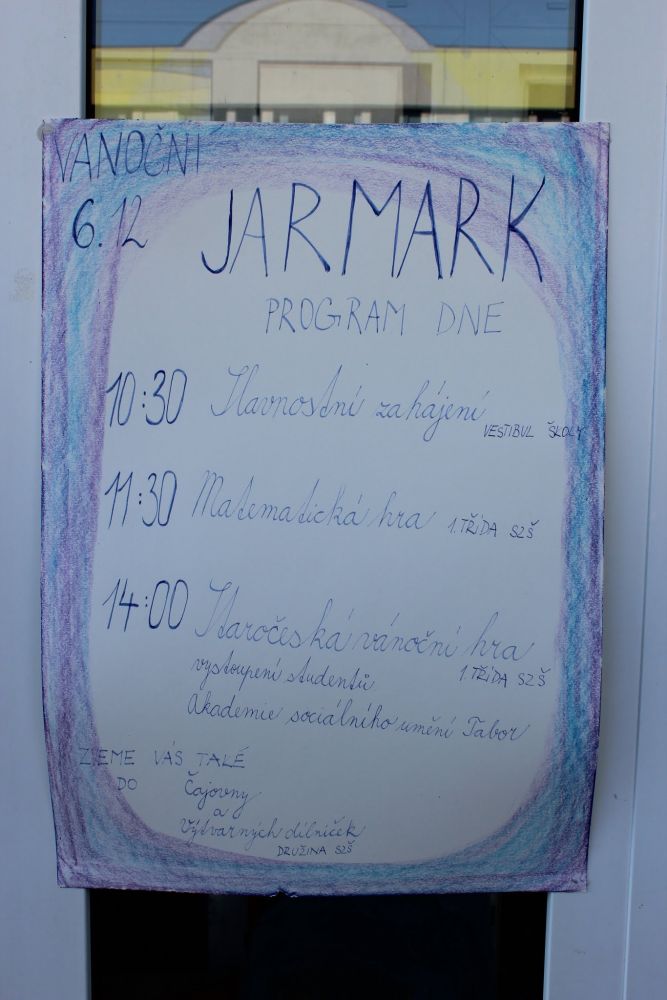 VÁNOČNÍ
6.12 JARMARK
PROGRAM DNE
10:30 Slavnostní zahájení
VESTIBUL ŠKOLY
11:30 Matematická hra 1. TŘÍDA SZŠ
14:00 Staročeská vánoční hra
1. TŘÍDA SZŠ
vystoupení studentů
Akademie sociálního umění Tabor
ZVEME VÁS TAKÉ
DO Čajovny
a
Výtvarných dílniček
DRUŽINA SZŠ